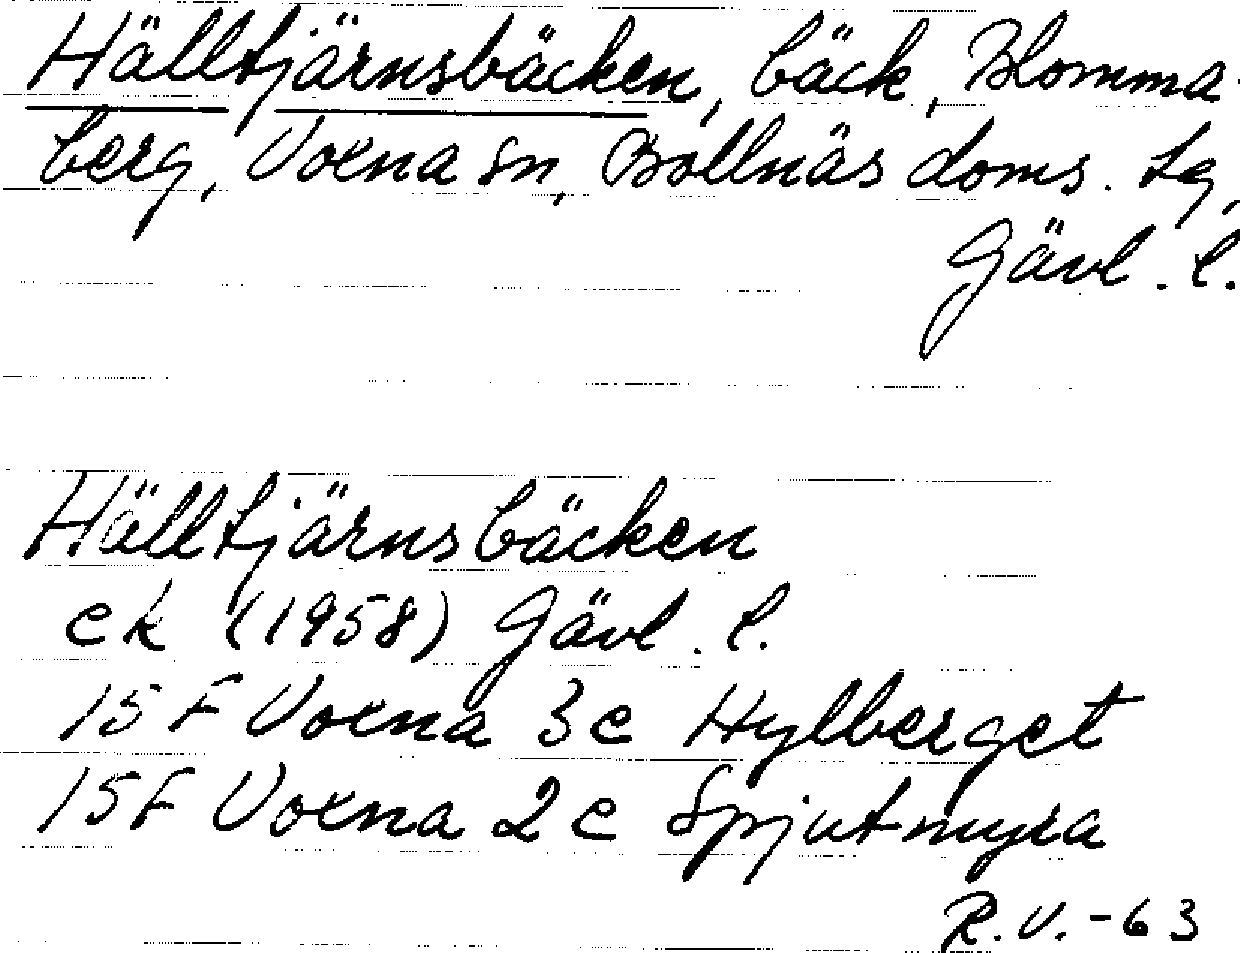 Hälltjärnsbäcken, bäck, Blomma-
berg, Voxna sn, Bollnäs doms. tg,
Gävl. l.
Hälltjärnsbäcken
ek (1958) Gävl. l.
15 F Voxna 3e Hylberget
15F Voxna 2e Spjutmyra
R.V.-63